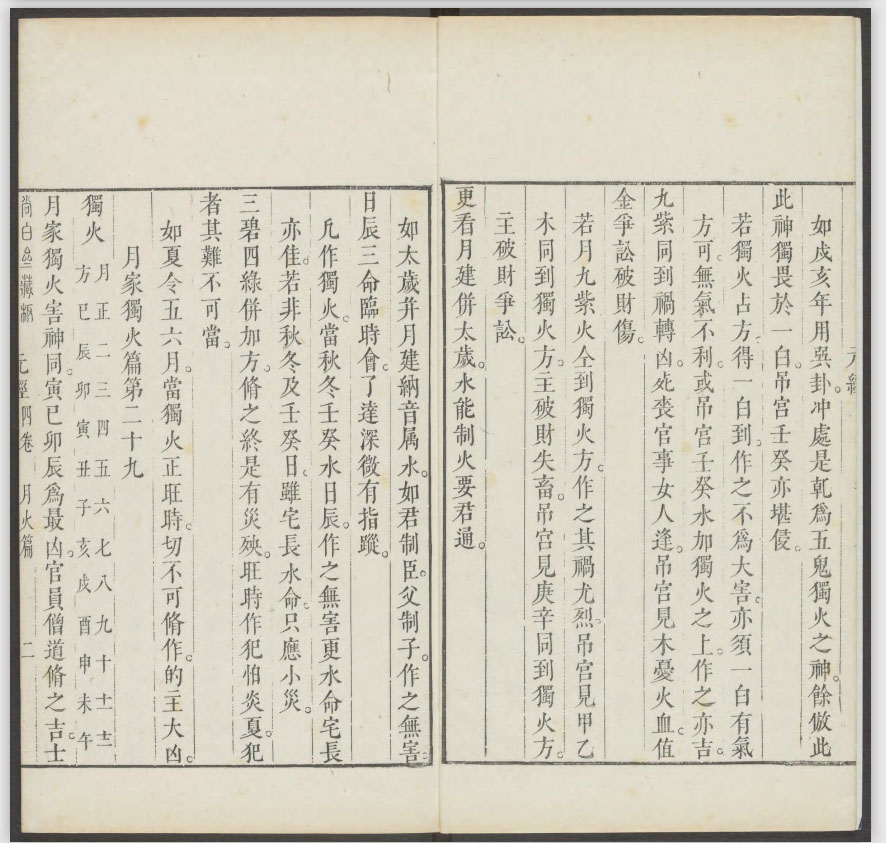 如戍亥年用巽卦冲處是乹爲五鬼獨火之神。餘倣此
此神獨畏於一白。吊宮壬癸亦堪侵。
若獨火占方。得一白到。作之不爲大害。亦須一白有氣
方可。無氣不利。或吊宮壬癸水加獨火之上。作之亦吉。
九紫同到禍轉凶。死喪官事女人逢。吊宮見木憂火血。值
金爭訟破財傷。
若月九紫火仝到獨火方。作之其禍尤烈。吊宮見甲乙
木同到獨火方。主破財失畜。吊宮見庚辛同到獨火方。
主破財爭訟。
更看月建併太歲。水能制火要君通。
如太歲并月建納音属水。如君制臣。父制子。作之無害。
日辰三命臨時會。了達深微有指蹤。
凡作獨火。當秋冬壬癸水日辰。作之無害。更水命宅長
亦佳。若非秋冬及壬癸日。雖宅長水命。只應小災。
三碧四綠併加方。脩之終是有災殃。旺時作犯怕炎夏。犯
者其難不可當。
如夏令五六月。當獨火正旺時。切不可脩作。的主大凶。
月家獨火篇第二十九
獨火 月正二三四五六七八九十十一十二
方巳辰卯寅丑子亥戍酉申未午
月家獨火害神同。寅巳卯辰爲最凶。官員僧道脩之吉。士
元經四卷 月火篇 二